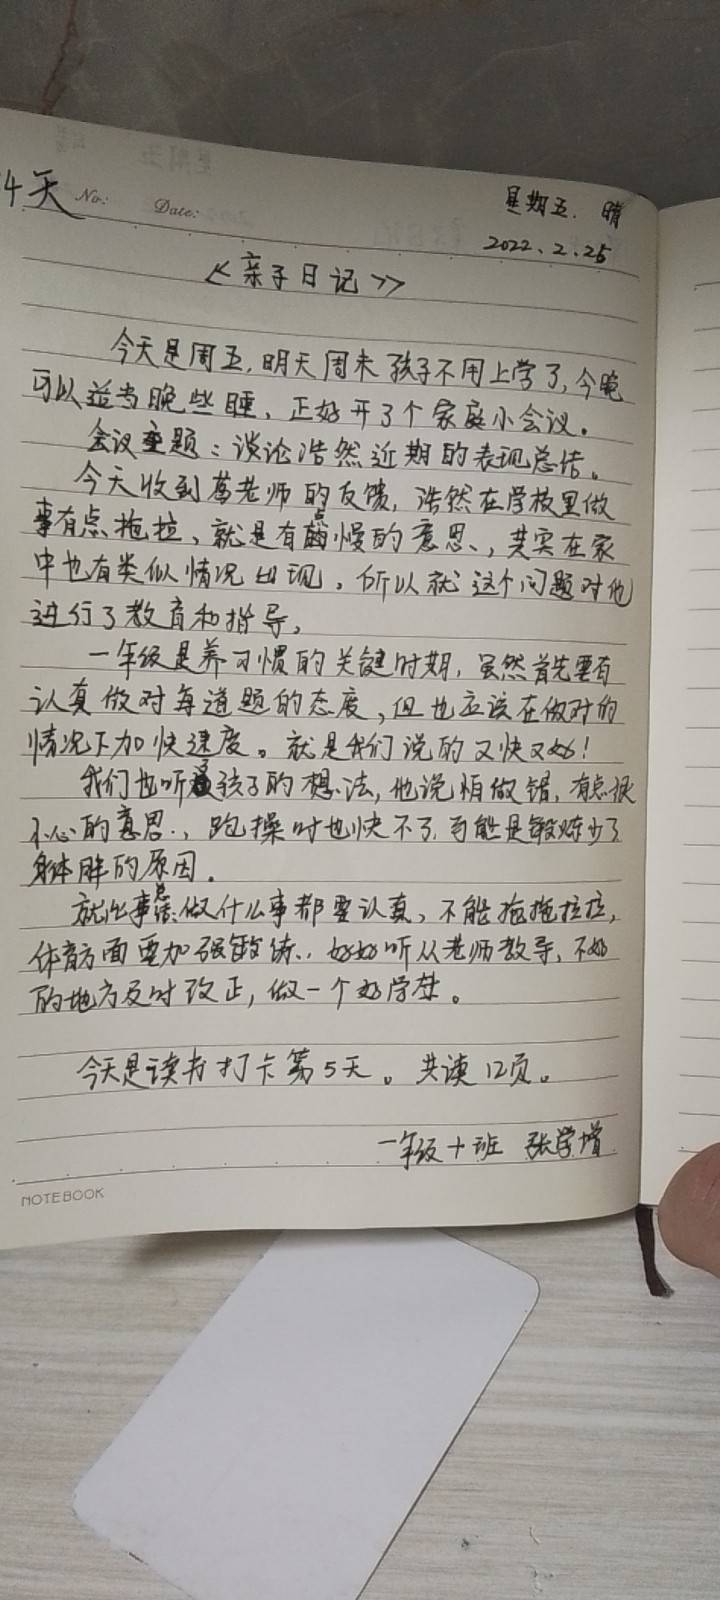 4天 No: Date: 星期五. 晴
2022.2.25
《亲子日记》
今天是周五,明天周末孩子不用上学了,今晚
可以适当晚些睡、正好开了个家庭小会议。
会议主题:谈论浩然近期的表现总结。
今天收到葛老师的反馈,浩然在学校里做
事有点拖拉、就是有点慢的意思、,其实在家
中也有类似情况出现。所以就这个问题对他
进行了教育和指导。
一年级是养习惯的关键时期,虽然首先要有
认真做对每道题的态度,但也应该在做对的
情况下加快速度。就是我们说的又快又好!
我们也听孩子的想法,他说怕做错,有点很
小心的意思.,跑操时也快不了,可能是锻炼少了
身体胖的原因。
就此事,做什么事都要认真、不能拖拖拉拉,
体育方面要加强锻练.,好好听从老师教导,不好
的地方及时改正,做一个好学生。
今天是读书打卡第5天。共读12页。
一年级十班 张学增
NOTEBOOK